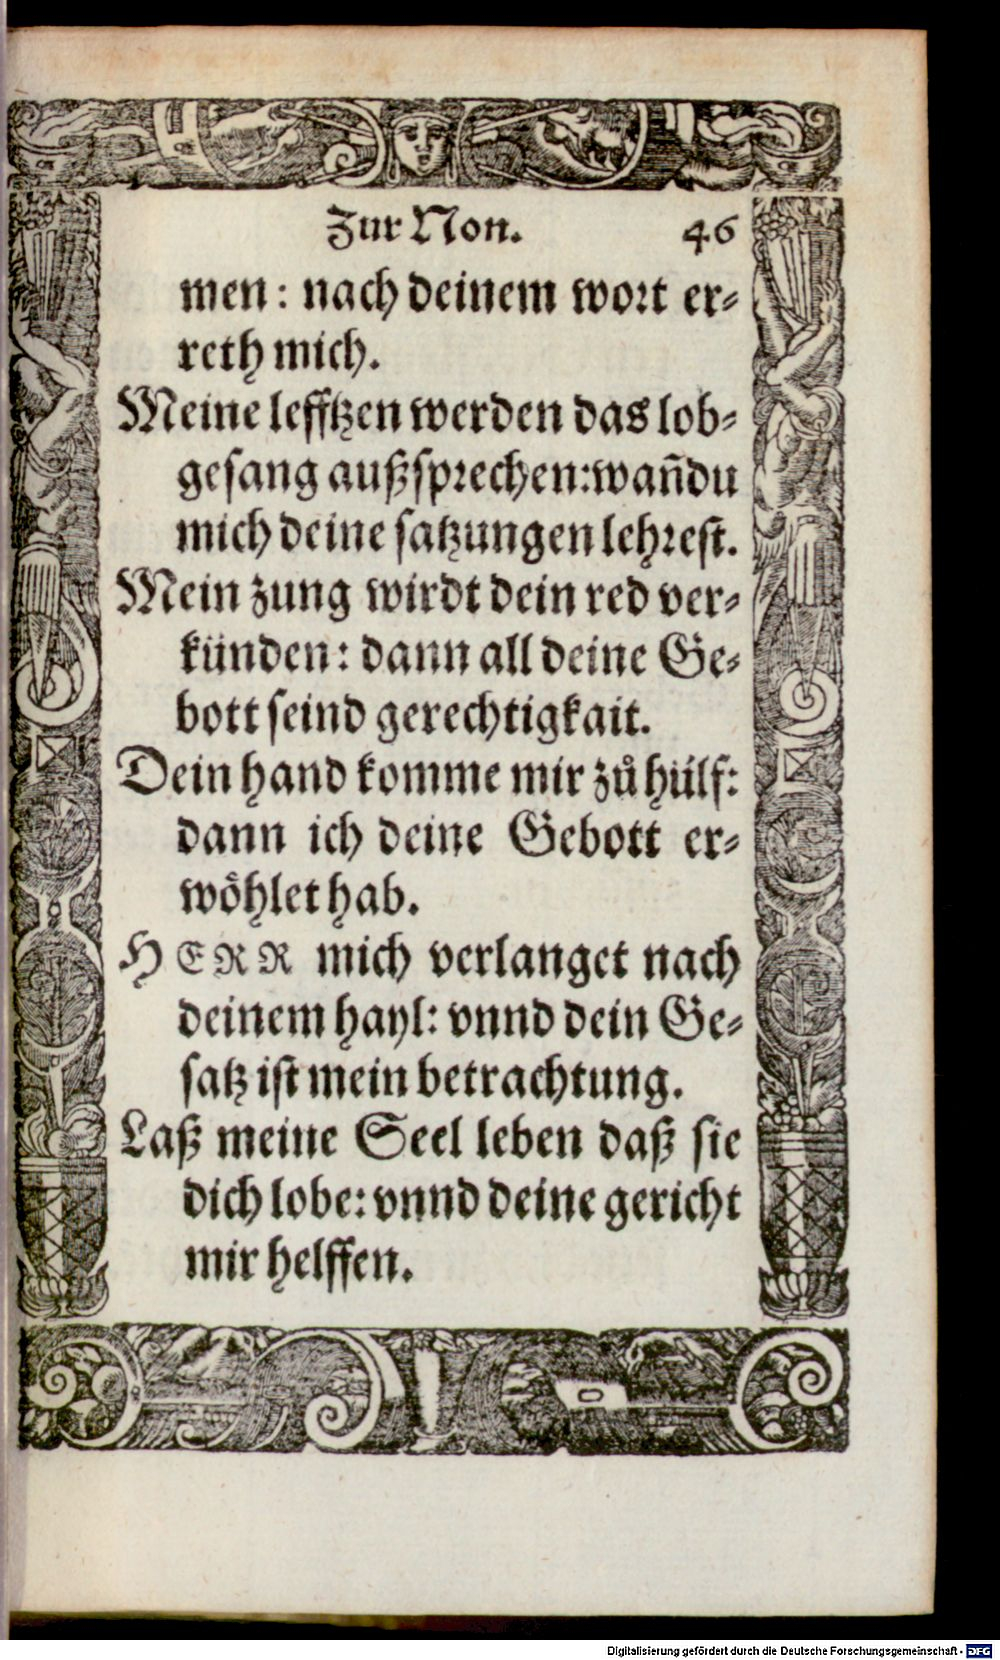 Zur Non. 46
men: nach deinem wort er-
reth mich.
Meine lefftzen werden das lob-
gesang außsprechen: wañ du
mich deine satzungen lehrest.
Mein zung wirdt dein red ver-
künden: dann all deine Ge-
bott seind gerechtigkait.
Dein hand komme mir zů hülf:
dann ich deine Gebott er-
wöhlet hab.
HERR mich verlanget nach
deinem hayl: vnnd dein Ge-
satz ist mein betrachtung.
Laß meine Seel leben daß sie
dich lobe: vnnd deine gericht
mir helffen.
Digitalisierung gefördert durch die Deutsche Forschungsgemeinschaft - DFG